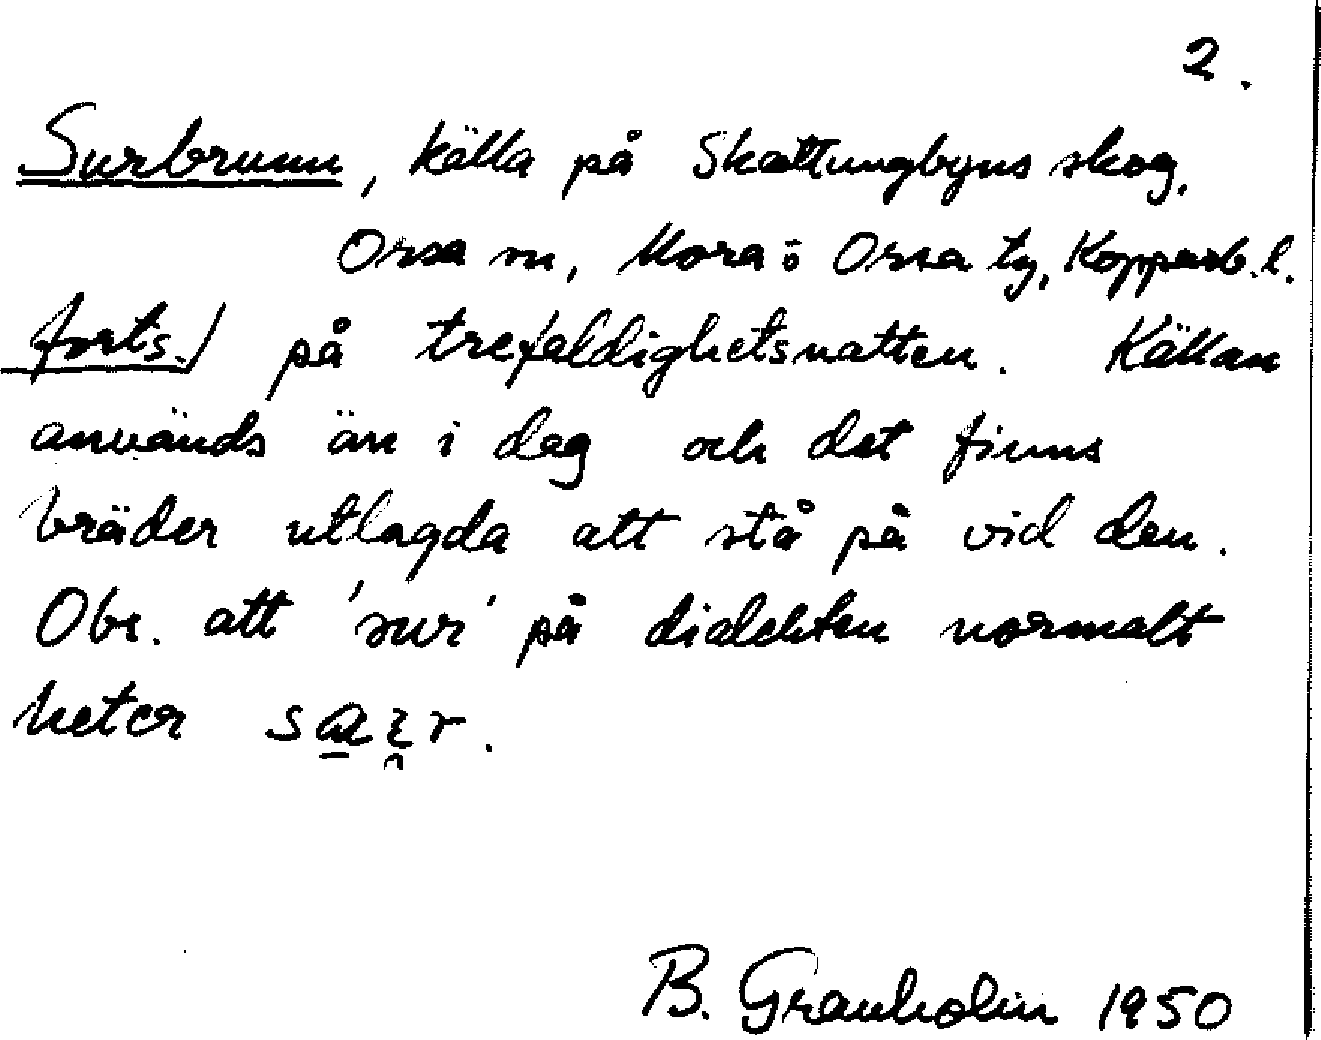 2.
Surbrunn, källa på Skattungbyns skog,
Orsa sn, Mora o Orsa tg, Kopparb. l.
forts./ på trefaldighetsnatten. Källan
används än i dag och det finns
bräder utlagda att stå på vid den.
Obs. att 'sur' på dialekten normalt
heter
B. Granholm 1950